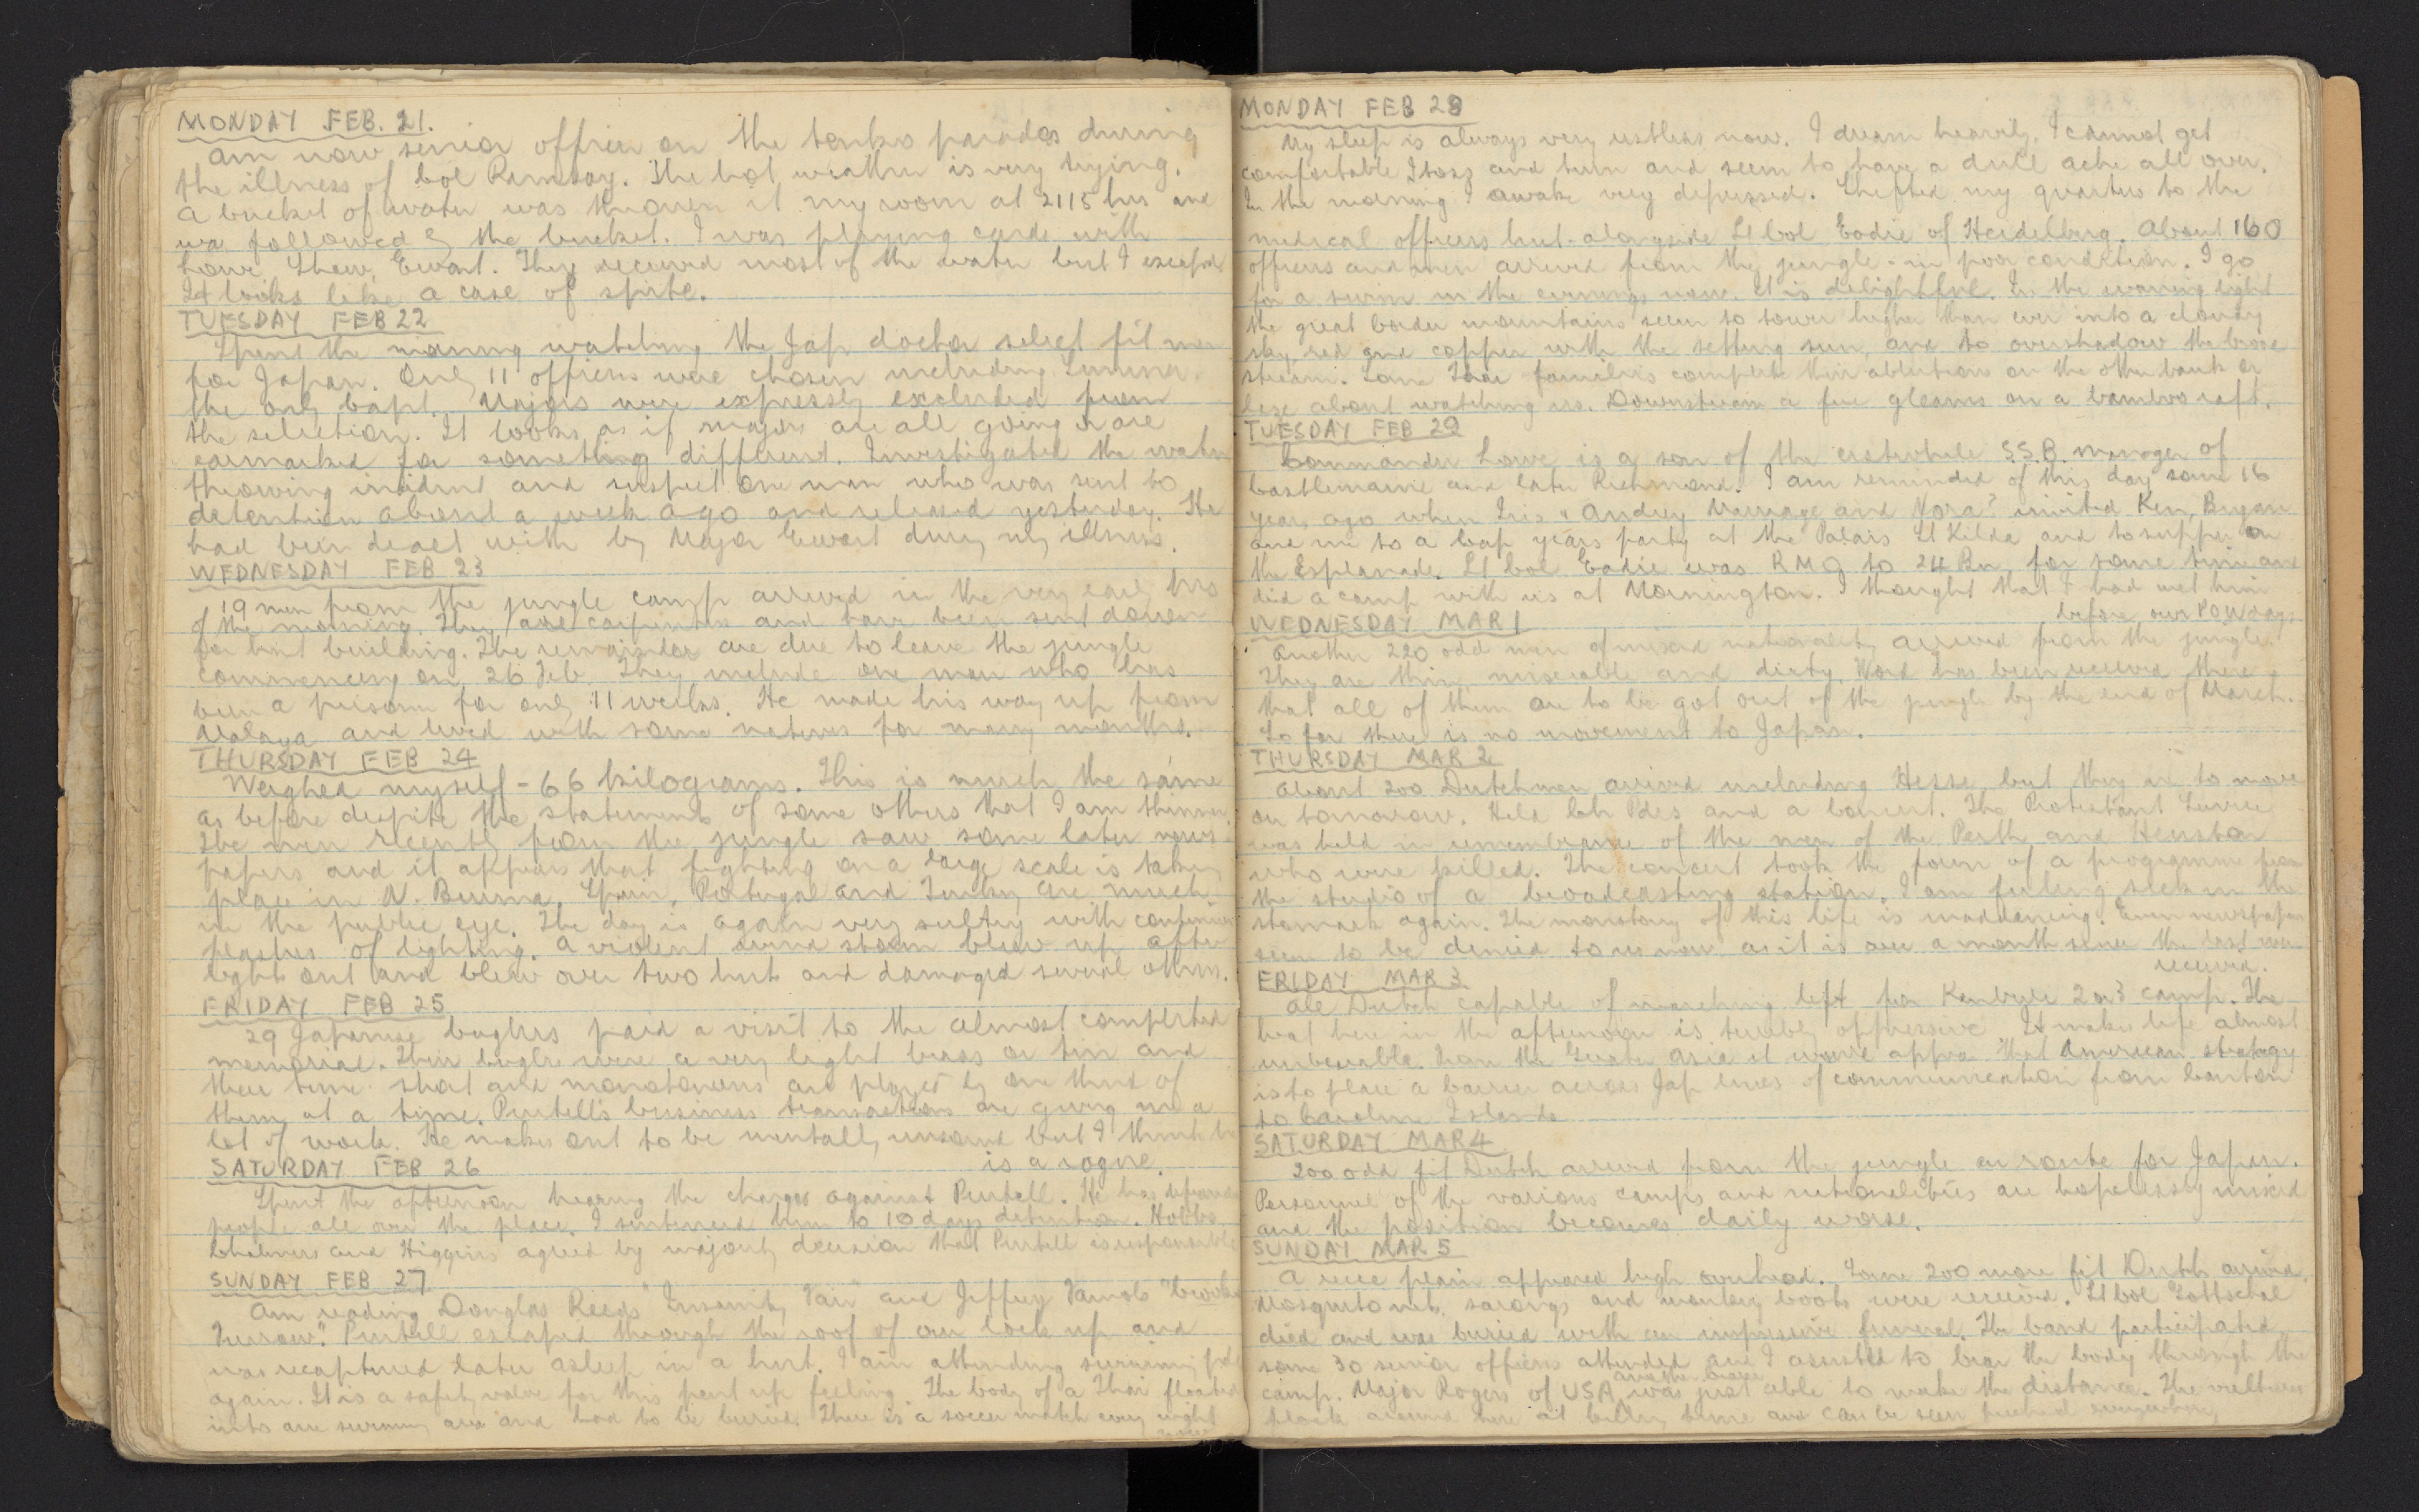 MONDAY FEB. 21.
Am now senior officer on the tenko parades during
the illness of Col Ramsay. The hot weather is very trying.
A bucket of water was thrown at my room at 2115 hrs and
was followed by the bucket. I was playing cards with
Lowe, Shaw, Ewart. They received most of the water but I escaped
It looks like a case of spite.
TUESDAY FEB 22
Spent the morning watching the Jap doctor select fit men
for Japan. Only 11 officers were chosen including
the only Capt. Majors were expressly excluded from
the selection. It looks as if majors are all going or are
earmarked for something different. Investigated the water
throwing incident and suspect one man who was sent to
detention about a week ago and released yesterday. He
had been dealt with by Major Ewart during my illness.
WEDNESDAY FEB 23
19 men from the jungle camp arrived in the very early hrs
of the morning. They are carpenters and have been sent down
for hut building. The remainder are due to leave the jungle
commencing on 26 Feb. They include one man who has
been a prisoner for only 11 weeks. He made his way up from
Malaya and lived with some natives for many months.
THURSDAY FEB 24
Weighed myself - 66 kilograms. This is much the same
as before despite the statements of some others that I am thinner.
The men recently from the jungle saw some later news
papers and it appears that fighting on a large scale is taking
place in N. Burma. Spain, Portugal and Turkey are much
in the public eye. The day is again very sultry with continuous
flashes of lighting. A violent wind storm blew up after
lights out and blew over two huts and damaged several others.
FRIDAY FEB 25
29 Japanese buglers paid a visit to the almost completed
memorial. Their bugles were a very light brass or tin and
their tune short and monotonous and played by one third of
them at a time. Purtell's business transactions are giving me a
lot of work. He makes out to be mentally unsound but I think he
is a rogue.
SATURDAY FEB 26
Spent the afternoon hearing the charges against Purtell. He has
people all over the place. I sentenced him to 10 days detention. Hobbs
Chalmers and Higgins agreed by majority decision that Purtell is responsible
SUNDAY FEB 27
Am reading Douglas Reeds "Insanity Fair" and Jeffery Farnols "Crooked
Furrow". Purtell escaped through the roof of our lock up and
was recaptured later asleep in a hut. I am attending swimming
again. It is a safety valve for this pent up feeling. The body of a Thai floated
into our swimming area and had to be buried. There is a soccer match every night
now
MONDAY FEB 28
My sleep is always very restless now. I dream heavily. I cannot get
comfortable I toss and turn and seem to have a dull ache all over.
In the morning I awake very depressed. Shifted my quarters to the
medical officers hut - alongside Lt Col Eadie of Heidelberg. About 160
officers and men arrived from the jungle - in poor condition. I go
for a swim in the evenings now. It is delightful. In the waning light
the great border mountains seem to tower higher than ever into a cloudy
sky red and copper with the setting sun, and to overshadow the broad
stream. Some Thai families complete their ablutions on the other bank or
laze about watching us. Downstream a fire gleams on a bamboo raft.
TUESDAY FEB 29
Commander Lowe is a son of the erstwhile S.S.B. manager of
Castlemaine and later Richmond. I am reminded of this day some 16
years ago when Iris & Audrey and Nora? invited Ken, Bryan
and me to a leap years party at the Palais St Kilda and to supper on
the Esplanade. Lt Col Eadie was RMO to 24 Bn for some time and
did a camp with us at Mornington. I thought that I had met him
before our POW days
WEDNESDAY MAR 1
Another 220 odd men of mixed nationality arrived from the jungle.
They are thin, miserable and dirty. Word has been received there
that all of them are to be got out of the jungle by the end of March.
So far there is no movement to Japan.
THURSDAY MAR 2
About 200 Dutchmen arrived including Hesse but they are to move
on tomorrow. Held Ch Pdes and a concert. The Protestant Service
was held in remembrance of the men of the Perth and Houston
who were killed. The concert took the form of a programme from
the studio of a broadcasting station. I am feeling sick in the
stomach again. The monotony of this life is maddening. Even newspapers
seem to be denied to us now as it is over a month since the last was
received.
FRIDAY MAR 3
All Dutch capable of marching left for Kanbyu 2 or 3 camp. The
heat here in the afternoon is terribly oppressive. It makes life almost
unbearable. From the Greater Asia it would appear that American strategy
is to place a barrier across Jap lines of communication from Canton
to Caroline Islands
SATURDAY MAR 4
200 odd fit Dutch arrived from the jungle en route for Japan.
Personnel of the various camps and nationalities are hopelessly mixed
and the position becomes daily worse.
SUNDAY MAR 5
A recce plane appeared high overhead. Some 200 more fit Dutch arrived.
Mosquito nets, sarongs and boots were received. Lt Col Gottschal
died and was buried with an impressive funeral. The band participated
some 30 senior officers attended and I assisted to bear the body through the
camp. Major Rogers of USA, was just able to make the distance. The vultures
flock around here at killing time and can be seen perched everywhere